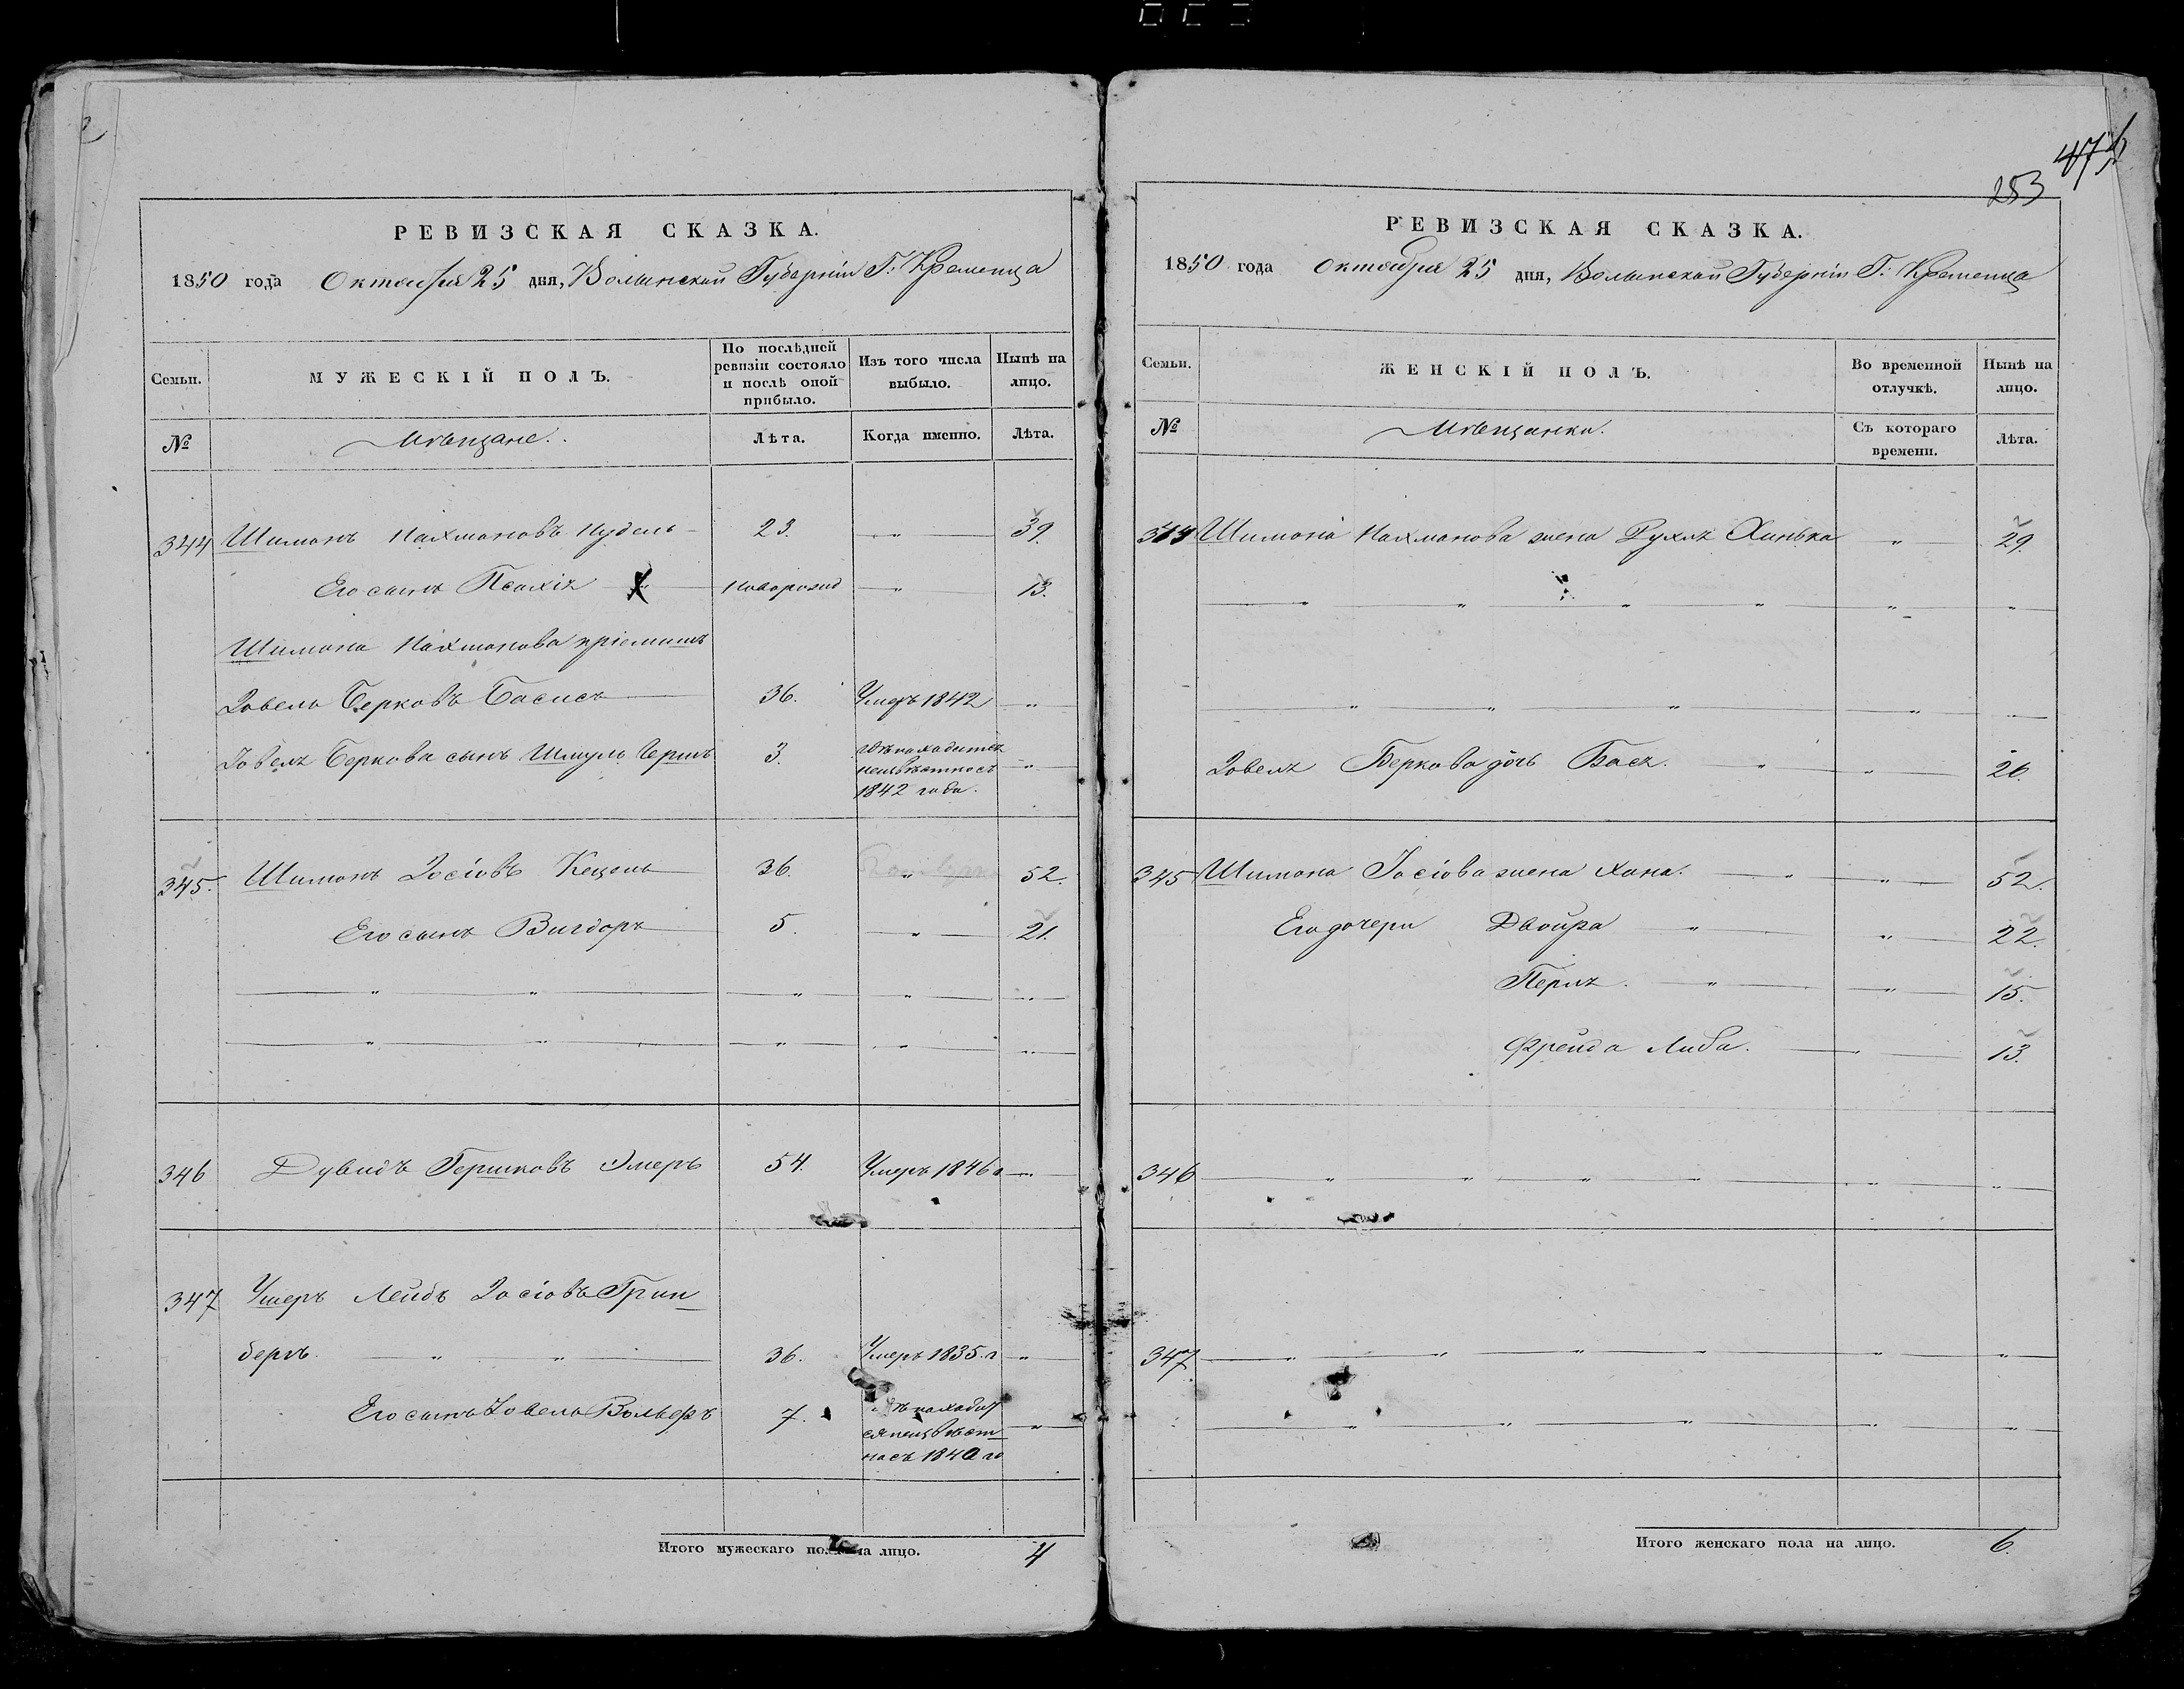 474
253
РЕВИЗСКАЯ СКАЗКА.
1850 года Октября 25 дня, Волынской Губерніи Г: Кременца
Семьи. МУЖЕСКІЙ ПОЛЪ. По послѣдней ревизіи состояло и послѣ оной прибыло. Изъ того числа выбыло. Нынѣ на лицо.
№ Мѣщане. Лѣта. Когда именно. Лѣта.
344 Шимонъ Нахмановъ Нудель 23. " 39.
Его сынъ Псахія Новорожд " 13.
Шимона Нахманова пріемышъ
Іовель Берковъ Басисъ 36. Умеръ 1842 "
Іовеля Беркова сынъ Шмуль Гершъ 3. гдѣ находится
неизвѣстно съ "
1842 года.
345. Шимонъ Іосіовъ Кецель 36. " 52.
Его сынъ Вигдоръ 5. " 21.
" " " " "
" " " " "
346 Дувидъ Гершковъ Эмеръ 54. Умеръ 1846 г "
347 Ушеръ Лейбъ Іосіовъ Грин
бергъ. " " 36. Умеръ 1835. г "
Его сынъ Іовель Вольферъ 7. гдѣ находит
ся неизвѣст "
но съ 1840 го
Итого мужескаго пола на лицо. 4
РЕВИЗСКАЯ СКАЗКА.
1850 года Октября 25 дня, Волынской Губерніи Г: Кременца
Семьи. ЖЕНСКІЙ ПОЛЪ. Во временной отлучкѣ. Нынѣ на лицо.
№ Мѣщанки. Съ котораго времени. Лѣта.
344 Шимона Нахманова жена Рухля Хинька " 29.
" " " " " "
" " " " "
Іовеля Беркова дочь Бася. " " 26.
345 Шимона Іосіова жена Хана. " " 52.
Его дочери Двойра " " 22.
Перля. " " 15.
Фрейда Либа. " 13.
346 " " " " " "
347 " " " " " "
" " " " "
Итого женскаго пола на лицо. 6.